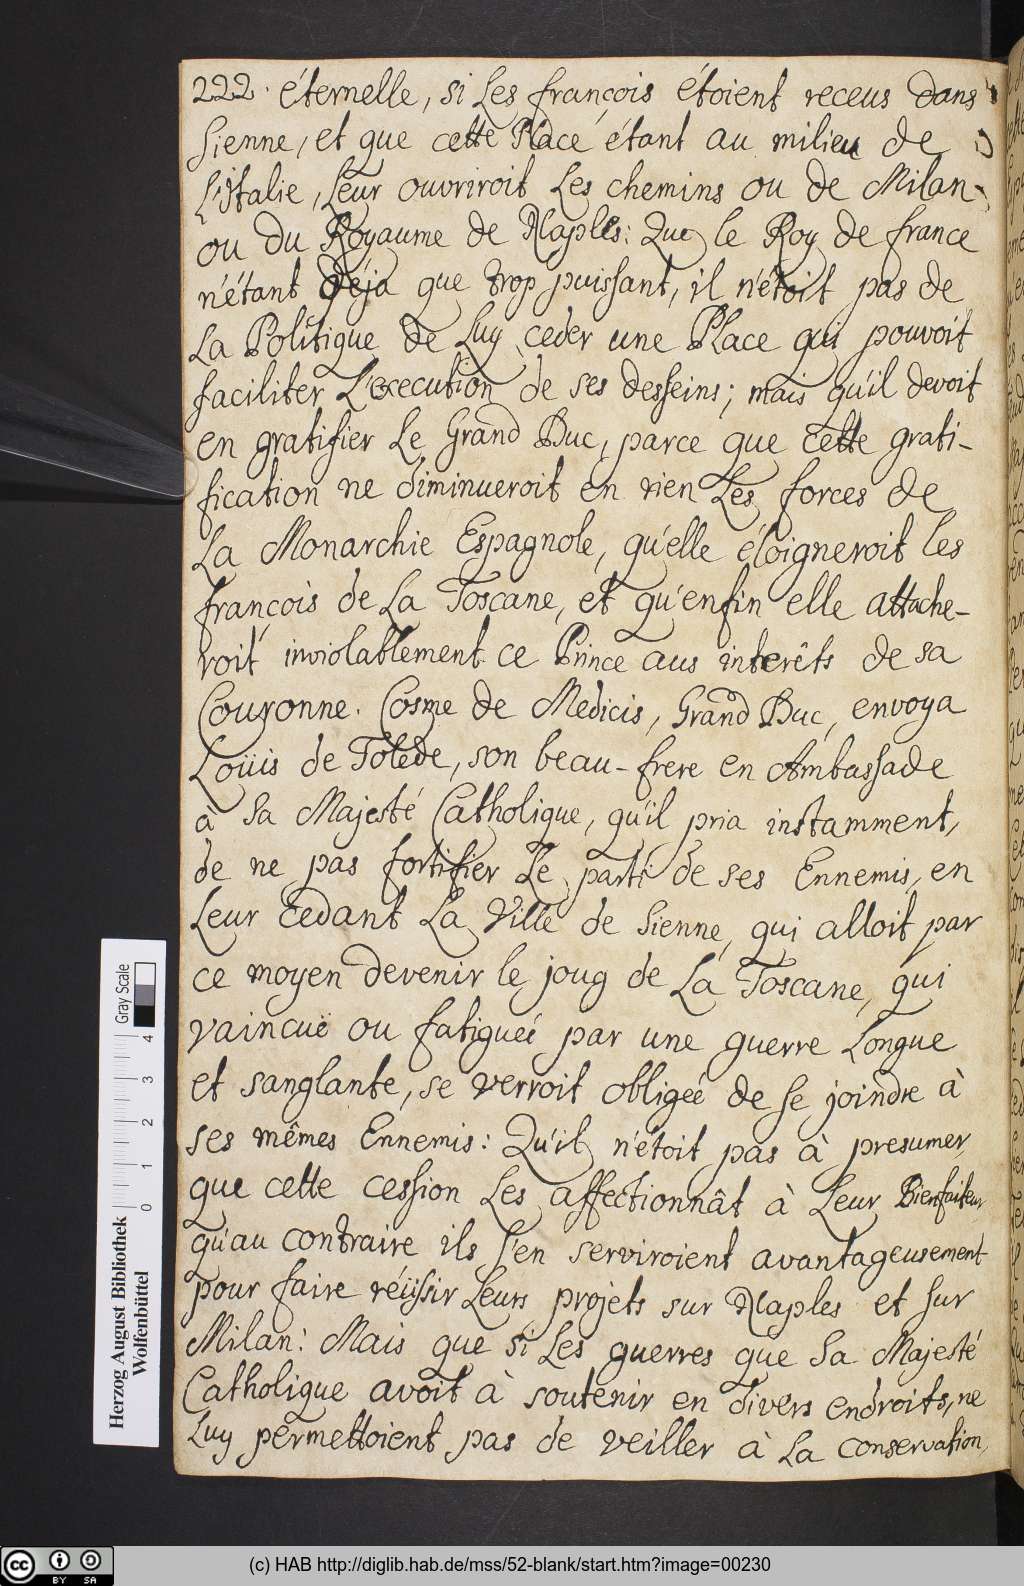 222. éternelle, si Les françois étoient receus dans
Sienne, et que cette Place étant au milieu de
L'Italie, Leur ouvriroit Les chemins ou de Milan
ou du Royaume de Naples: Que le Roy de france
n'étant déja que trop puissant, il n'étoit pas de
La Politique de Luy ceder une Place qui pouvoit
faciliter L'execution de ses desseins; mais qu'il devoit
en gratifier Le Grand Duc, parce que cette grati-
fication ne diminueroit en rien Les forces de
La Monarchie Espagnole, qu'elle éloigneroit les
françois de La Toscane, et qu'enfin elle attache-
roit inviolablement ce Prince aus interêts de sa
Couronne. Cosme de Medicis, Grand Duc, envoya
Loüis de Tolede, son beau-frere en Ambassade
à Sa Majesté Catholique, qu'il pria instamment,
de ne pas fortifier Le parti de ses Ennemis, en
Leur cedant La Ville de Sienne, qui alloit par
ce moyen devenir le joug de La Toscane, qui
vaincuë ou fatiguée par une guerre Longue
et sanglante, se verroit obligée de se joindre à
ses mêmes Ennemis: Qu'il n'étoit pas à presumer,
que cette cession Les affectionnât à Leur Bienfaiteur,
qu'au contraire ils s'en serviroient avantageusement
pour faire réüssir Leurs projets sur Naples et sur
Milan: Mais que si Les guerres que Sa Majesté
Catholique avoit à soutenir en divers endroits, ne
Luy permettoient pas de veiller à La conservation,
Herzog August Bibliothek
Wolfenbüttel
0 1 2 3 4
Gray Scale
cc BY SA
(c) HAB http://diglib.hab.de/mss/52-blank/start.htm?image=00230